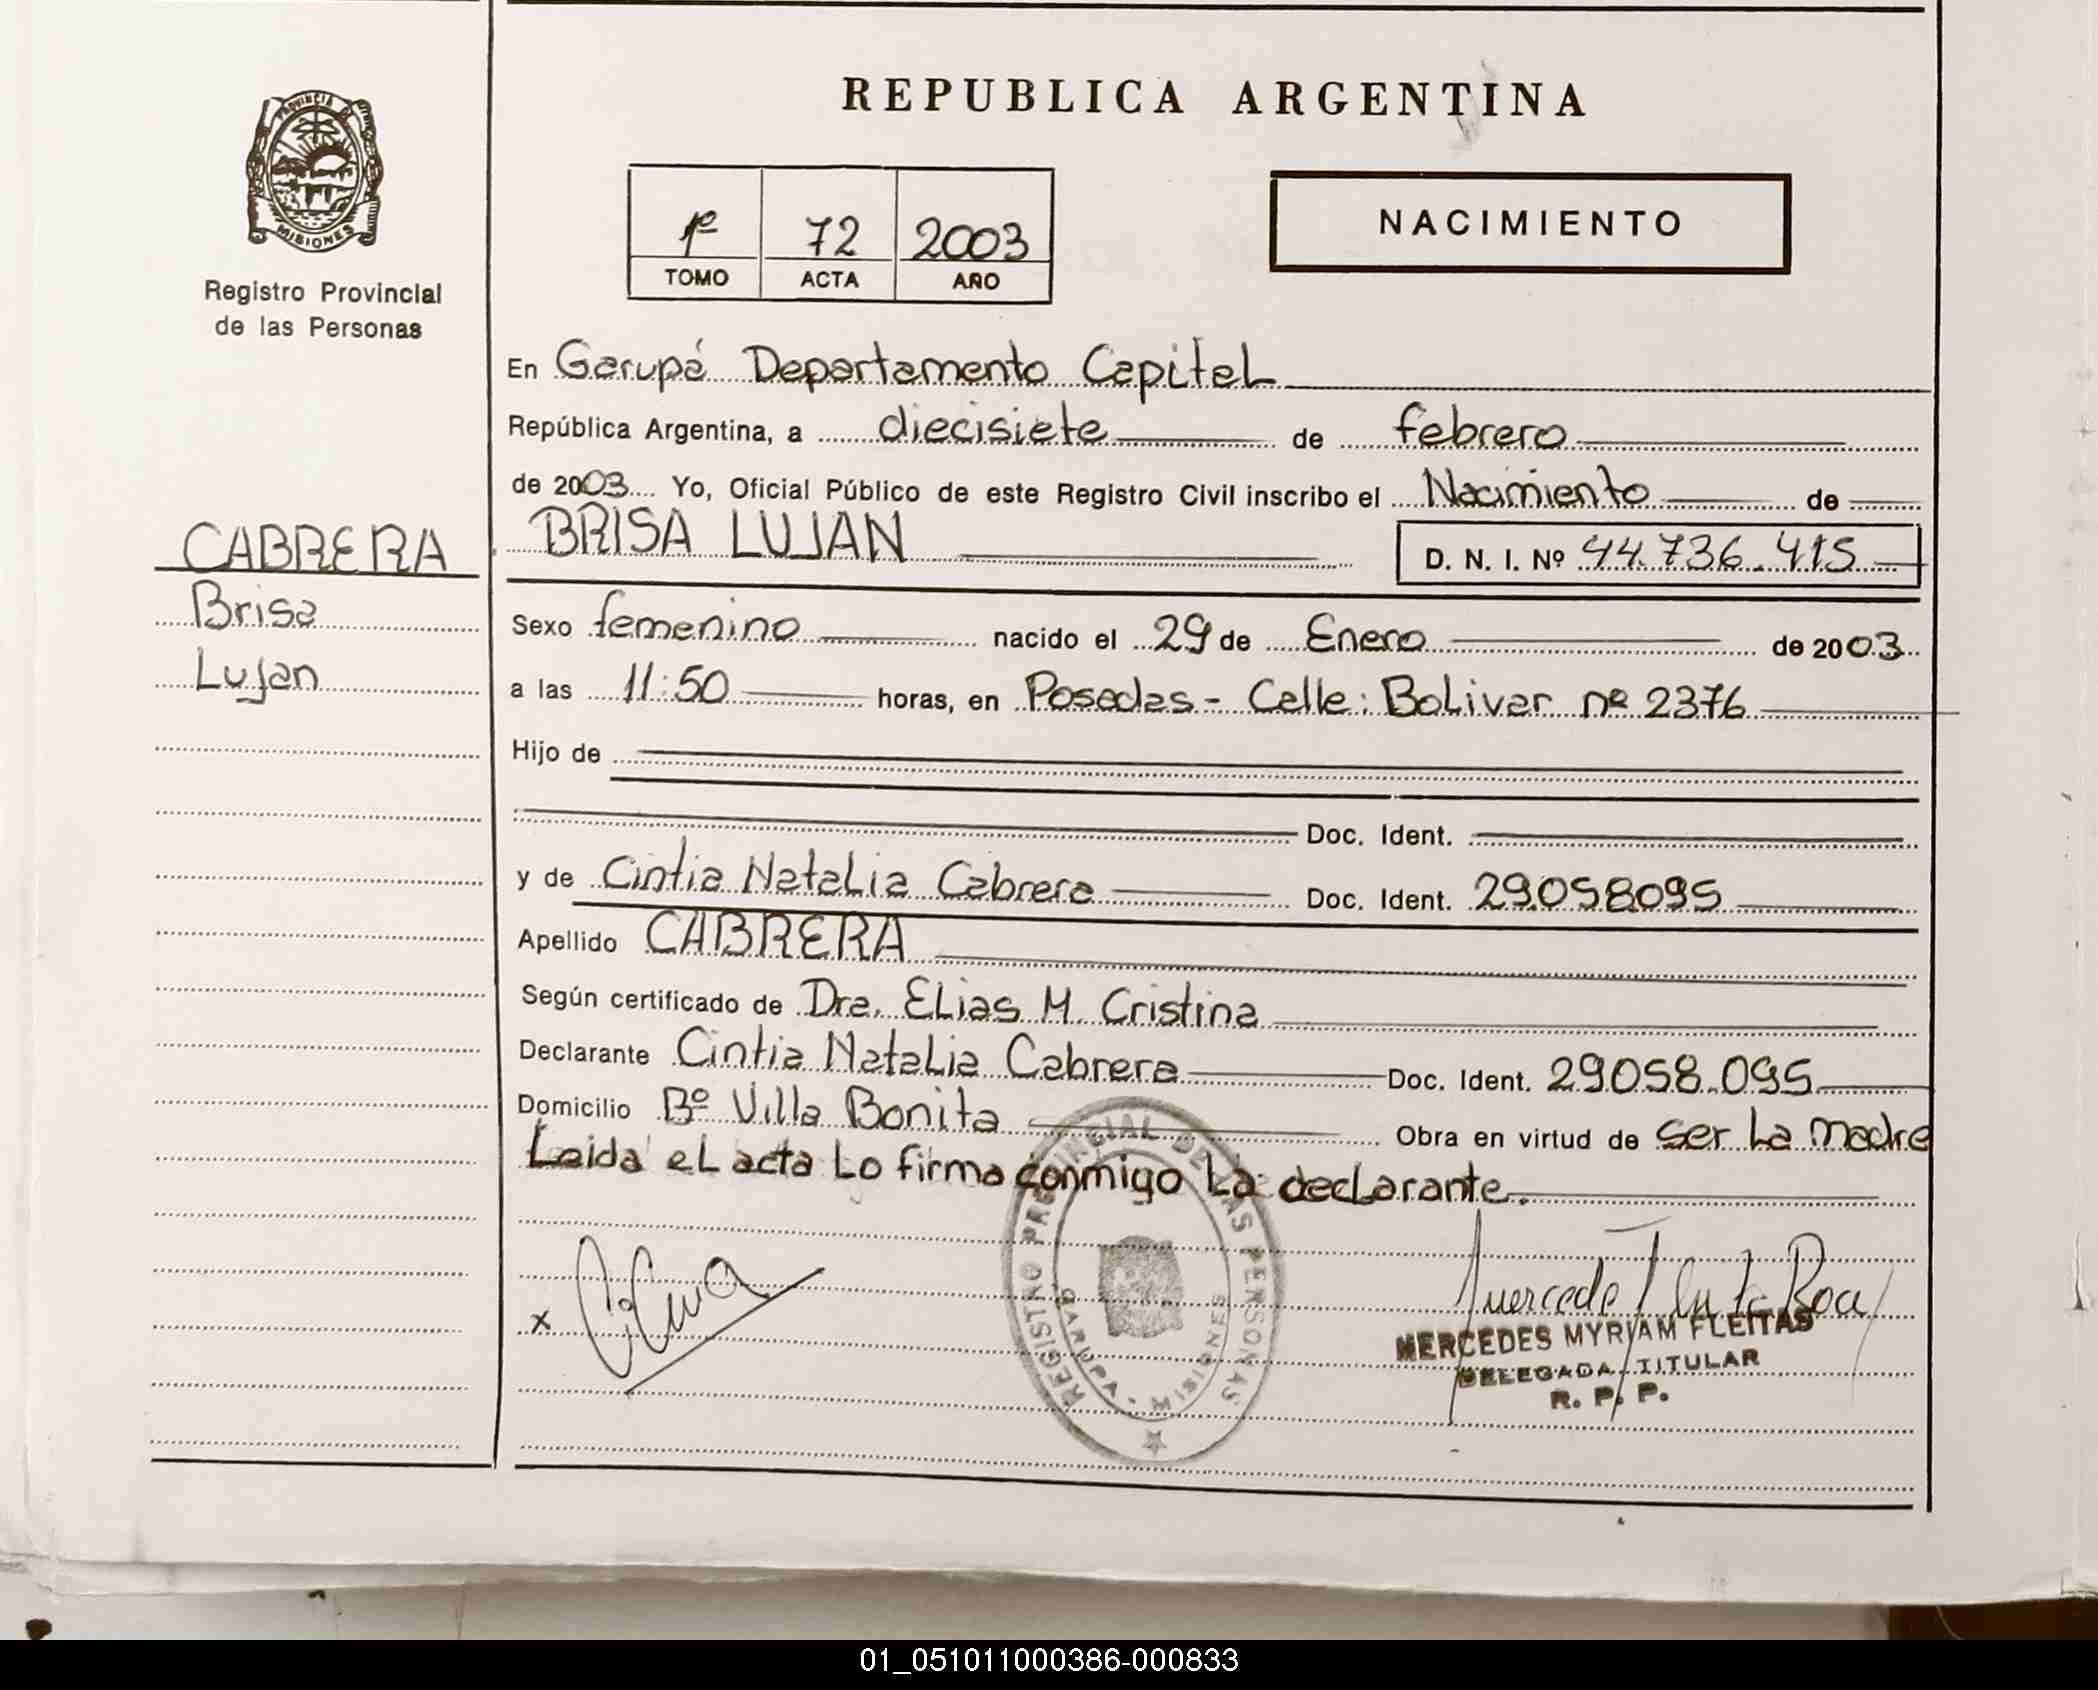 REPUBLICA ARGENTINA
PROVINCIA
MISIONES
Registro Provincial
de las Personas
1º 72 2003
TOMO ACTA AÑO
NACIMIENTO
En Garupá Departamento Capital
República Argentina, a diecisiete de febrero
de 2003 Yo, Oficial Público de este Registro Civil inscribo el Nacimiento de
CABRERA
Brisa
Lujan
BRISA LUJAN D. N. I. Nº 44.736.415
Sexo femenino nacido el 29 de Enero de 2003
a las 11:50 horas, en Posadas - Calle: Bolivar nº 2376
Hijo de
Doc. Ident.
y de Cintia Natalia Cabrera Doc. Ident. 29.058.095
Apellido CABRERA
Según certificado de Dra. Elias M. Cristina
Declarante Cintia Natalia Cabrera Doc. Ident. 29.058.095
Domicilio Bº Villa Bonita Obra en virtud de ser La madre
Leida el acta Lo firma conmigo La declarante.
REGISTRO PROVINCIAL DE LAS PERSONAS
GARUPA - MISIONES
x
MERCEDES MYRIAM FLEITAS
DELEGADA TITULAR
R. P. P.
01_051011000386-000833